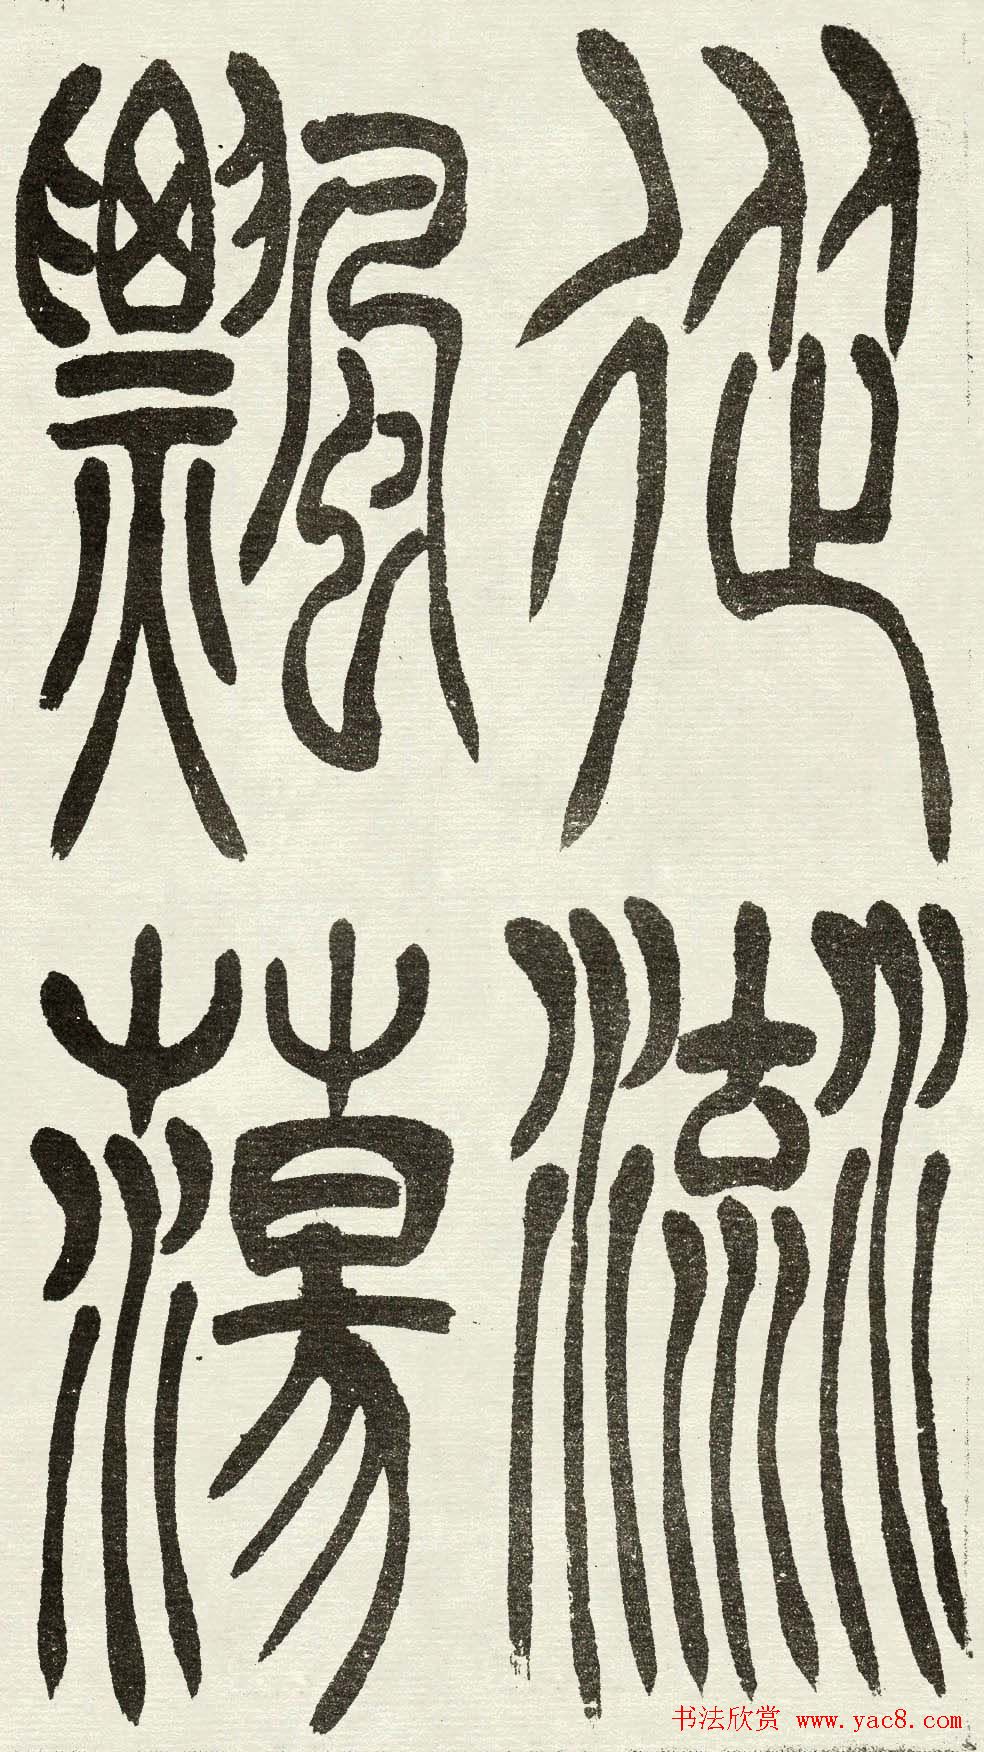 從流
飄蕩
书法欣赏 www.yac8.com